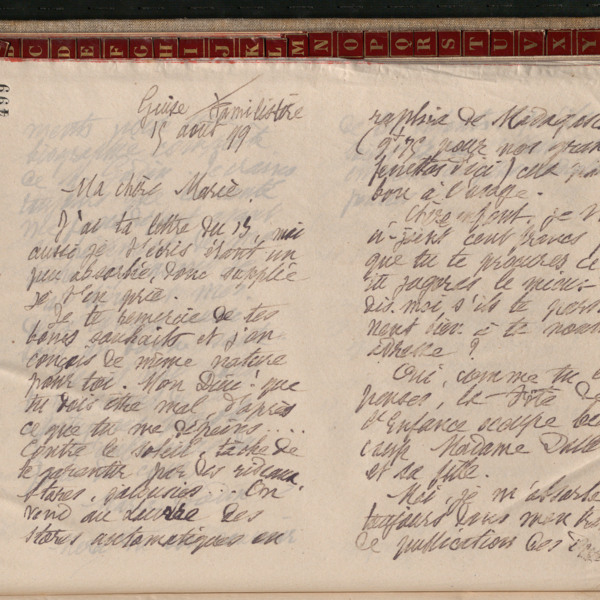 B C D E F G H I J K L M N O P Q R S T U V X Y
499
Guise Familistère
15 août 99
Ma chère Marie.
J'ai ta lettre du 13, moi
aussi je t'écris étant un
peu absorbée, donc supplée
je t'en prie.
Je te remercie de tes
bons souhaits et j'en
conçois de même nature
pour toi. Mon Dieu! que
tu dois être mal, d'après
ce que tu me dépeins....
Contre le soleil, tâche de
te garantir par des rideaux,
stores, jalousies... On
vend au Louvre des
stores automatiques en
raphia de Madagasc
(9f75 pour nos gran
fenêtres d'ici) cela
bon à l'usage.
Chère enfant, je
ci-joint cent francs
que tu te procures ce
tu jugeras le mieux
dis-moi s'ils te
à ta
adresse?
Oui, comme tu
penses, la Fête de
l'Enfance occupe
Madame
et sa fille.
Moi, je m'absorbe
toujours dans mon
de publications des